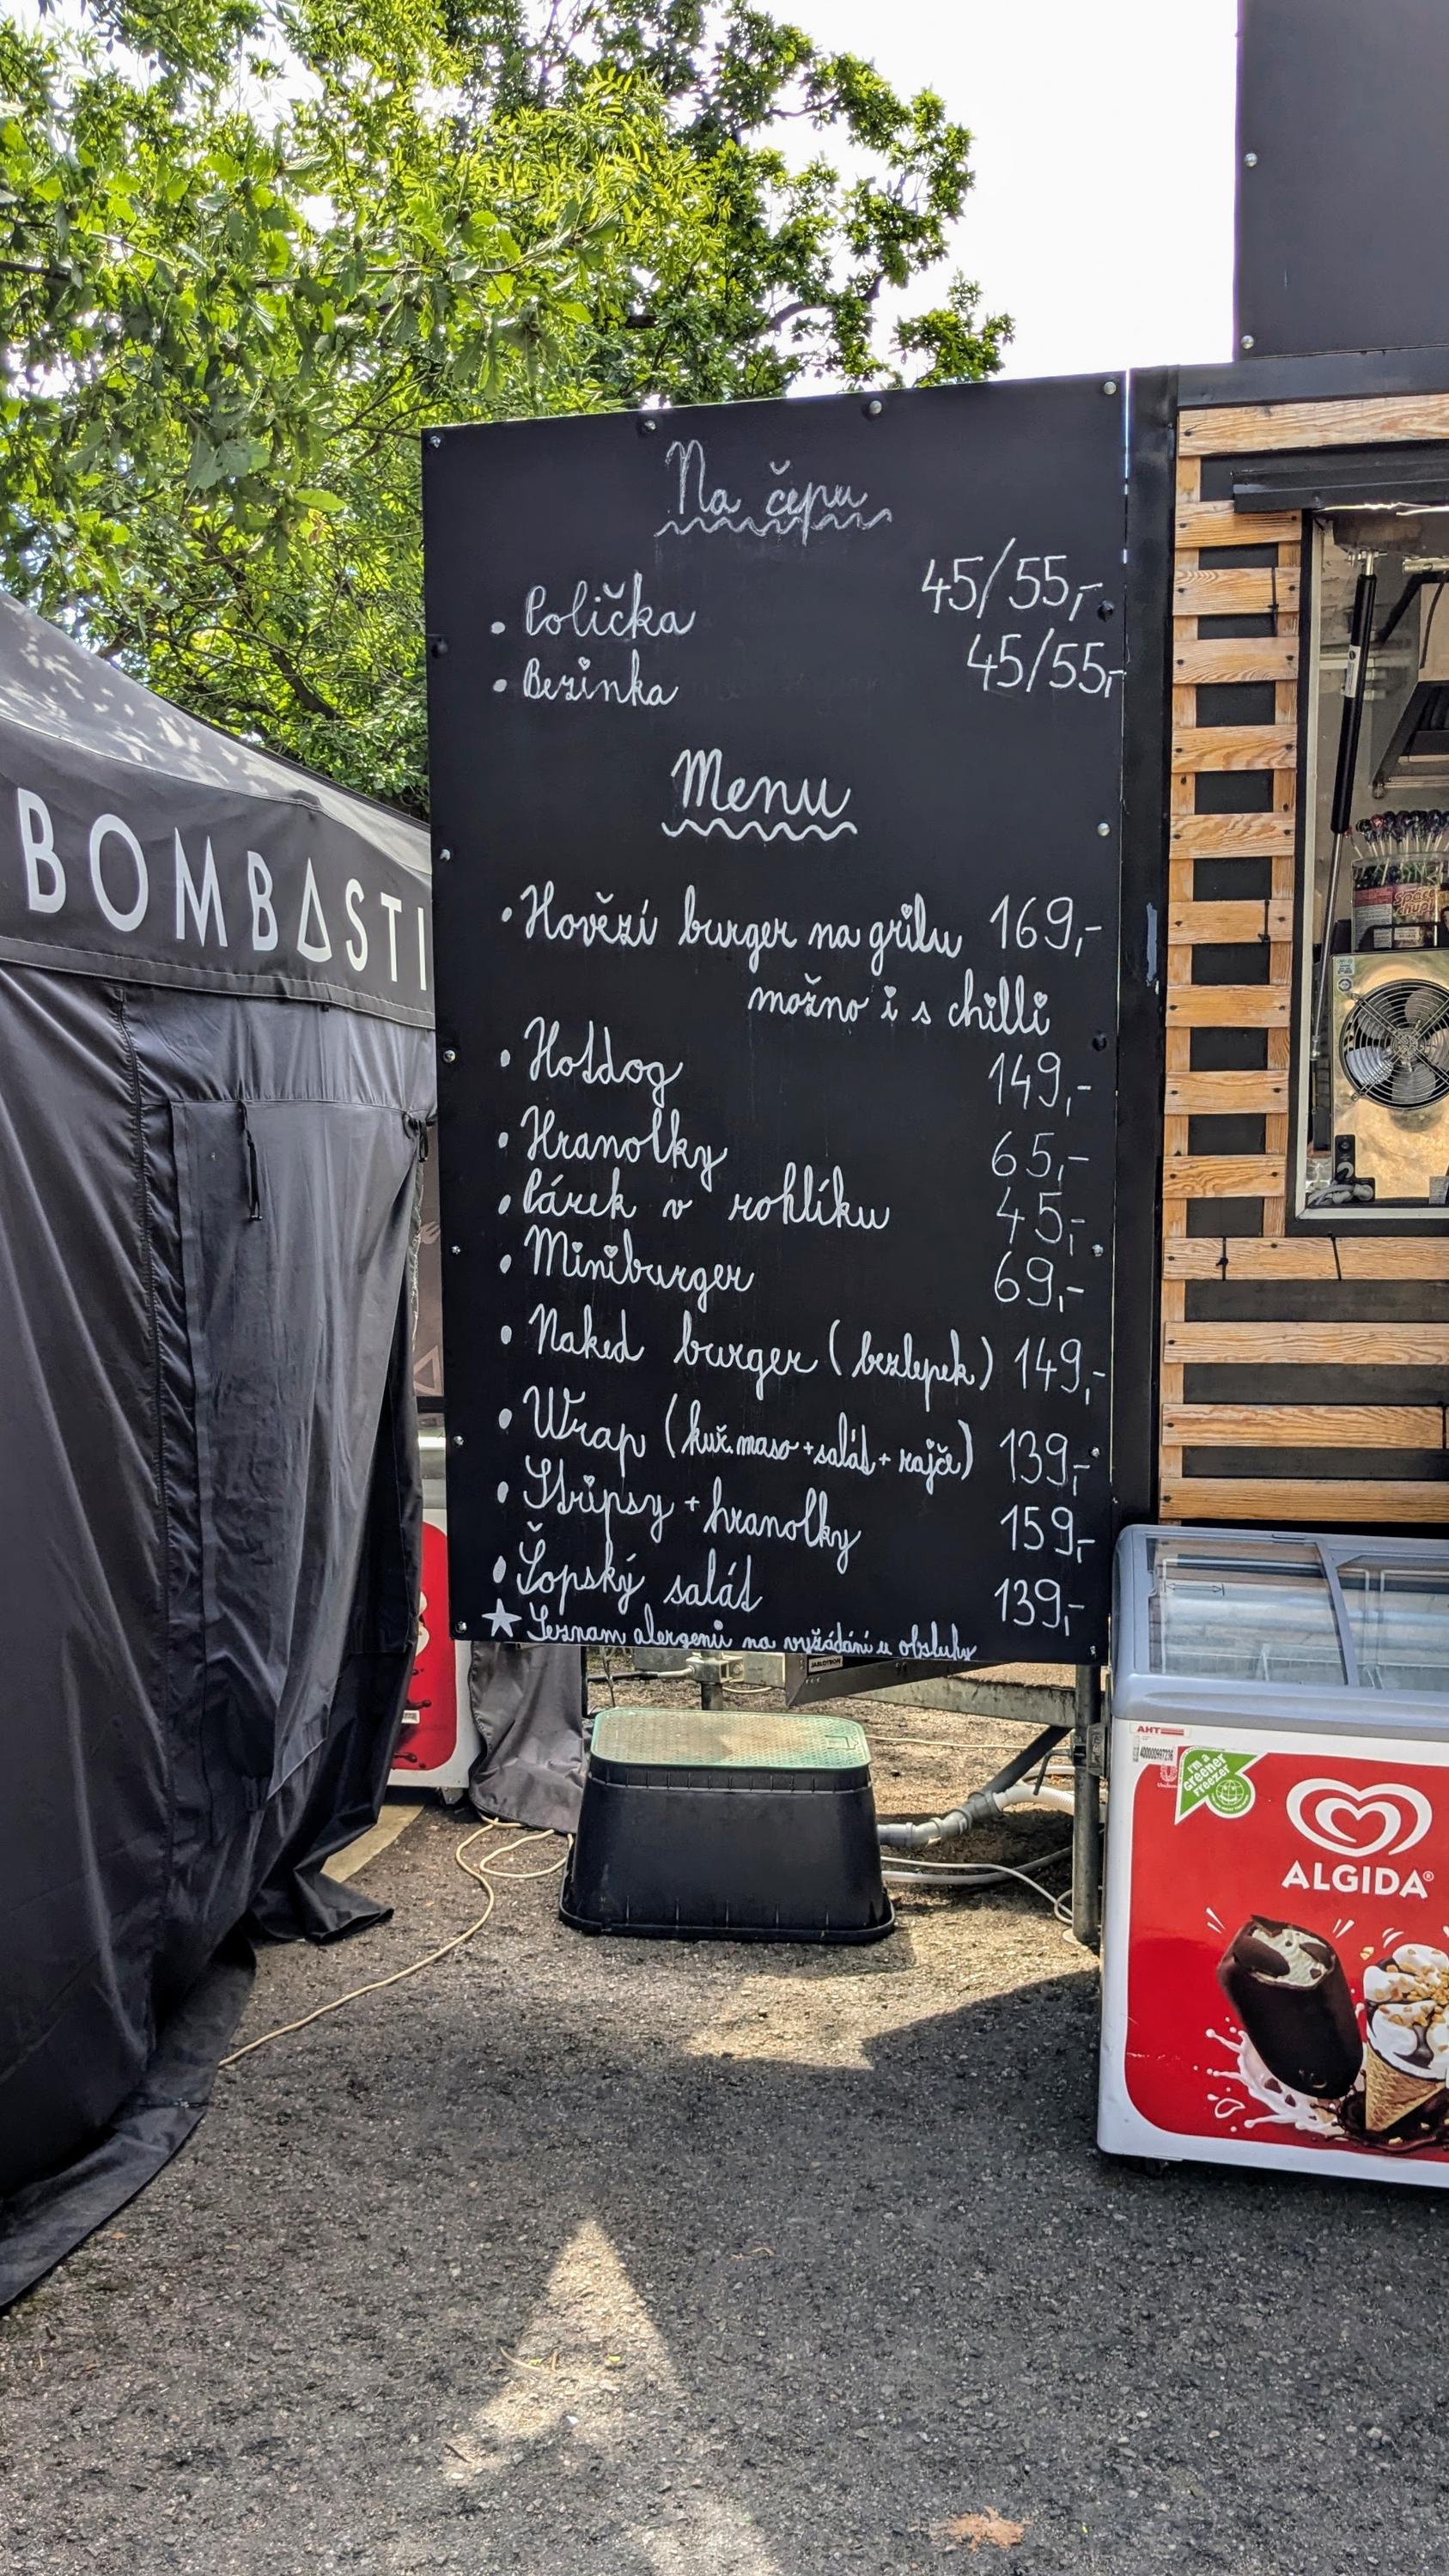 Na čepu
• Polička 45/55,-
• Bezinka 45/55,-
Menu
• Hovězí burger na grilu 169,-
možno i s chilli
• Hotdog 149,-
• Hranolky 65,-
• Párek v rohlíku 45,-
• Miniburger 69,-
• Naked burger (bezlepek) 149,-
• Wrap (kuř. maso + salát + rajče) 139,-
• Stripsy + hranolky 159,-
• Šopský salát 139,-
★ Seznam alergenů na vyžádání u obsluhy
BOMBASTI
Space chup!
JABLOTRON
AHT
I'm a Greener Freezer
ALGIDA®